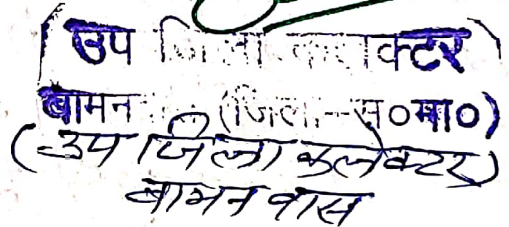 (उप जिला कलाक्टर)
बामन (जिला-स०मा०)
(उप जिला कलेक्टर)
बामनवास